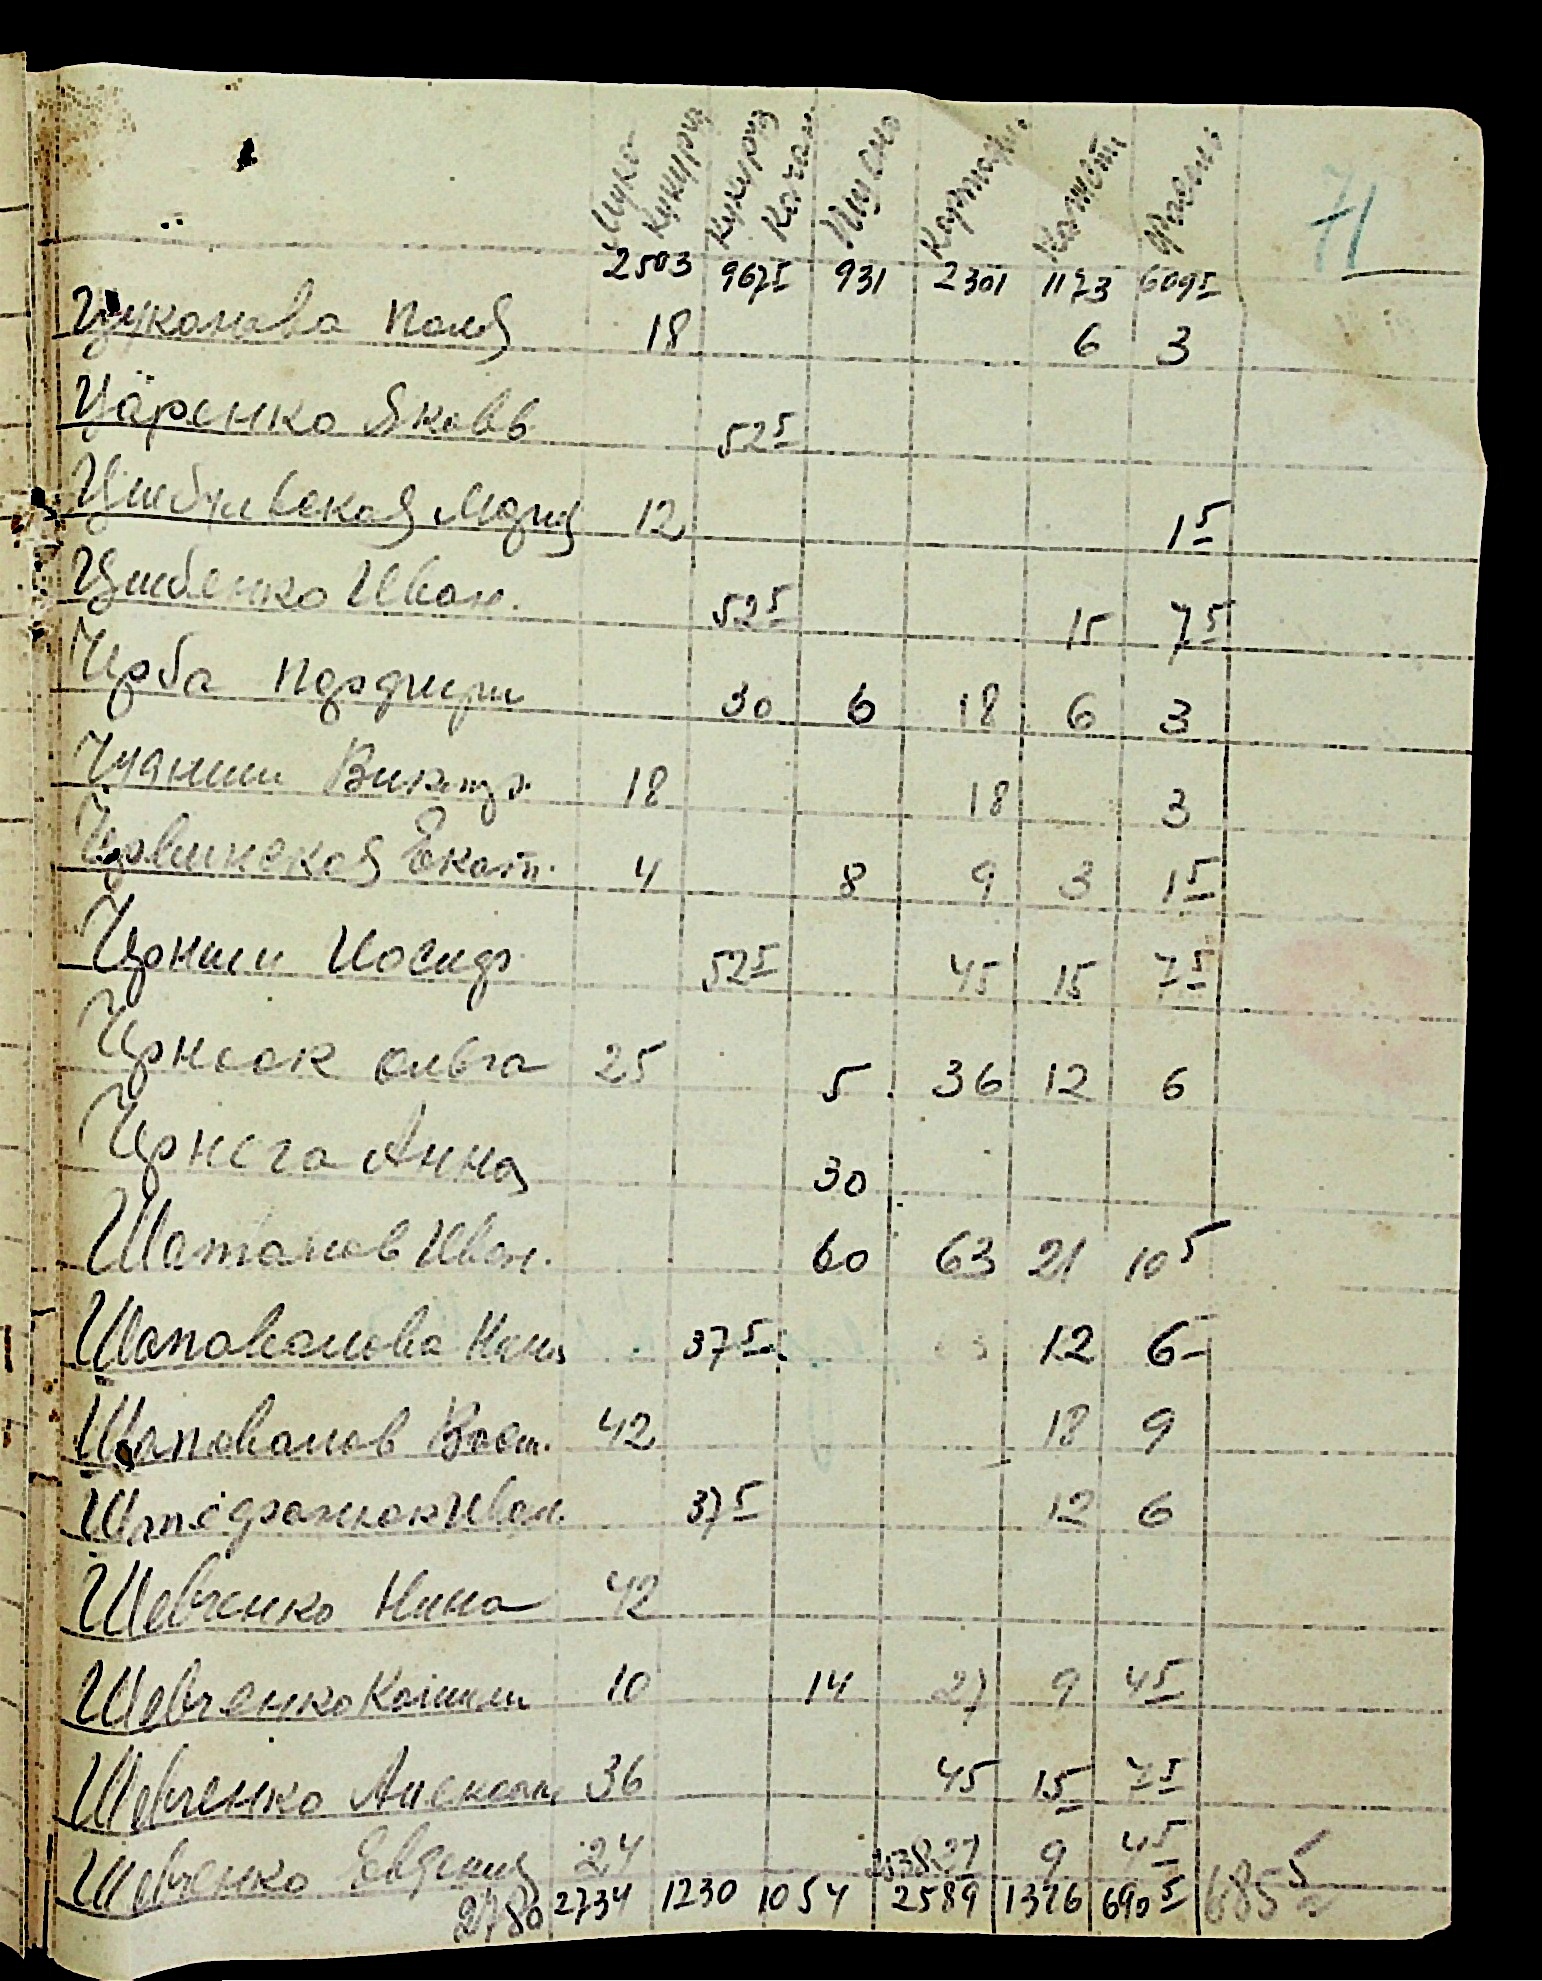 Мука Кукуруз Кукуруз Качан Пшено Картофи. Капуст. Фасоль
71
2503 967 5 931 2301 1173 609 5
Цуканова Поля 18 6 3
Царенко Яковъ 52 5
Цымбулвская Мария 12 1 5
Цымбенко Иван. 52 5 15 7 5
Чорба Порфири 30 6 18 6 3
Чуднии Виктор. 18 18 3
Червинская Екат. 4 8 9 3 1 5
Чорнии Иосиф 52 5 45 15 7 5
Ольга 25 5 36 12 6
Чорнега Анна 30
Шаталов Иван. 60 63 21 10 5
Шаповалова Нина 37 5 12 6
Шаповалов Васи. 42 18 9
Иван 37 5 12 6
Шевченко Нина 42
Шевченко 10 14 27 9 4 5
Шевченко Александ. 36 45 15 7 5
Шевченко Евдения 24 27 9 4 5
2780 2734 1230 1054 2589 1326 690 5 685 5